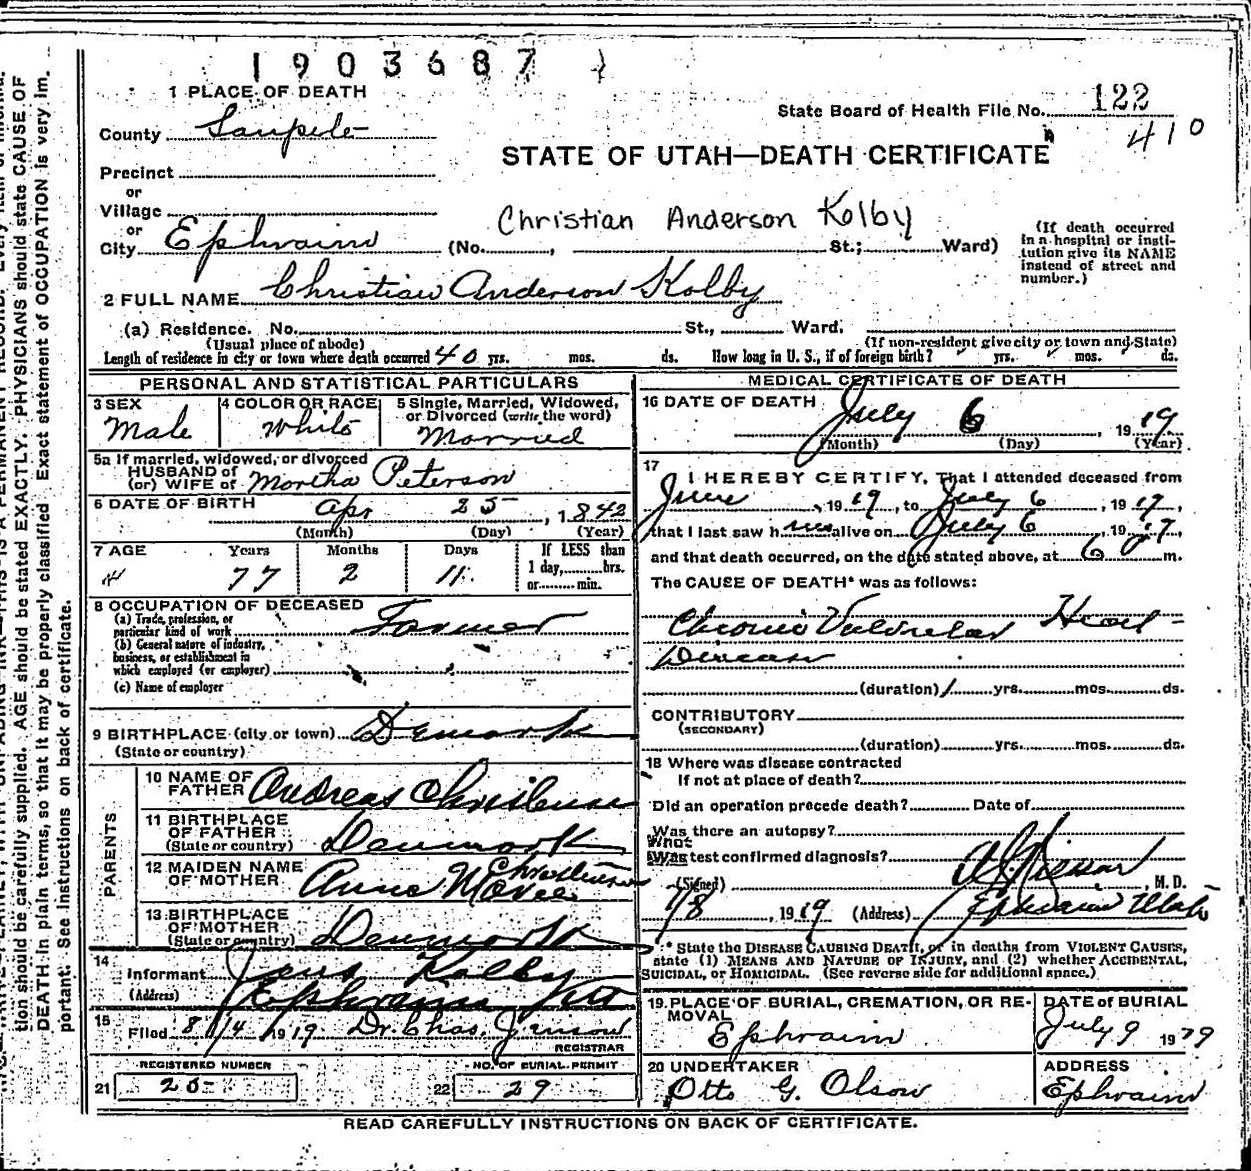 1903687
1 PLACE OF DEATH
State Board of Health File No. 122
County Sanpete
410
STATE OF UTAH—DEATH CERTIFICATE
Precinct
or
Village
or
Christian Anderson Kolby
City Ephraim (No. , St.; Ward)
(If death occurred in a hospital or institution give its NAME instead of street and number.)
2 FULL NAME Christian Anderson Kolby
(a) Residence. No. St., Ward,
(Usual place of abode) (If non-resident give city or town and State)
Length of residence in city or town where death occurred 40 yrs. mos. ds. How long in U. S., if of foreign birth? yrs. mos. ds.
PERSONAL AND STATISTICAL PARTICULARS
3 SEX Male
4 COLOR OR RACE White
5 Single, Married, Widowed, or Divorced (write the word) Married
5a If married, widowed, or divorced
HUSBAND of
(or) WIFE of Martha Peterson
6 DATE OF BIRTH Apr 25, 1842
(Month) (Day) (Year)
7 AGE Years Months Days If LESS than
77 2 11 1 day, hrs.
or min.
8 OCCUPATION OF DECEASED
(a) Trade, profession, or
particular kind of work Farmer
(b) General nature of industry,
business, or establishment in
which employed (or employer)
(c) Name of employer
9 BIRTHPLACE (city or town) Denmark
(State or country)
PARENTS
10 NAME OF
FATHER Andreas Christensen
11 BIRTHPLACE
OF FATHER
(State or country) Denmark
12 MAIDEN NAME
OF MOTHER Anne Christensen
13 BIRTHPLACE
OF MOTHER
(State or country) Denmark
14
Informant Jens Kolby
(Address) Ephraim
15
Filed 8/4, 1919. Dr. Chas.
REGISTRAR
REGISTERED NUMBER NO. OF BURIAL PERMIT
21 25 22 29
MEDICAL CERTIFICATE OF DEATH
16 DATE OF DEATH
July 6, 1919
(Month) (Day) (Year)
17
I HEREBY CERTIFY, That I attended deceased from
June, 1919, to July 6, 1919,
that I last saw him alive on July 6, 1919,
and that death occurred, on the date stated above, at 6 m.
The CAUSE OF DEATH* was as follows:
Chronic Valvular Heart
Disease
(duration) 1 yrs. mos. ds.
CONTRIBUTORY
(SECONDARY)
(duration) yrs. mos. ds.
18 Where was disease contracted
If not at place of death?
Did an operation precede death? Date of
Was there an autopsy?
What
Was test confirmed diagnosis?
(Signed) M. D.
7/8, 1919 (Address) Ephraim Utah
* State the DISEASE CAUSING DEATH, or in deaths from VIOLENT CAUSES,
state (1) MEANS AND NATURE OF INJURY, and (2) whether ACCIDENTAL,
SUICIDAL, or HOMICIDAL. (See reverse side for additional space.)
19 PLACE OF BURIAL, CREMATION, OR RE-
MOVAL
Ephraim
DATE of BURIAL
July 9 1919
20 UNDERTAKER
Otto G. Olson
ADDRESS
Ephraim
READ CAREFULLY INSTRUCTIONS ON BACK OF CERTIFICATE.
tion should be carefully supplied. AGE should be stated EXACTLY. PHYSICIANS should state CAUSE OF
DEATH in plain terms, so that it may be properly classified. Exact statement of OCCUPATION is very im-
portant. See instructions on back of certificate.